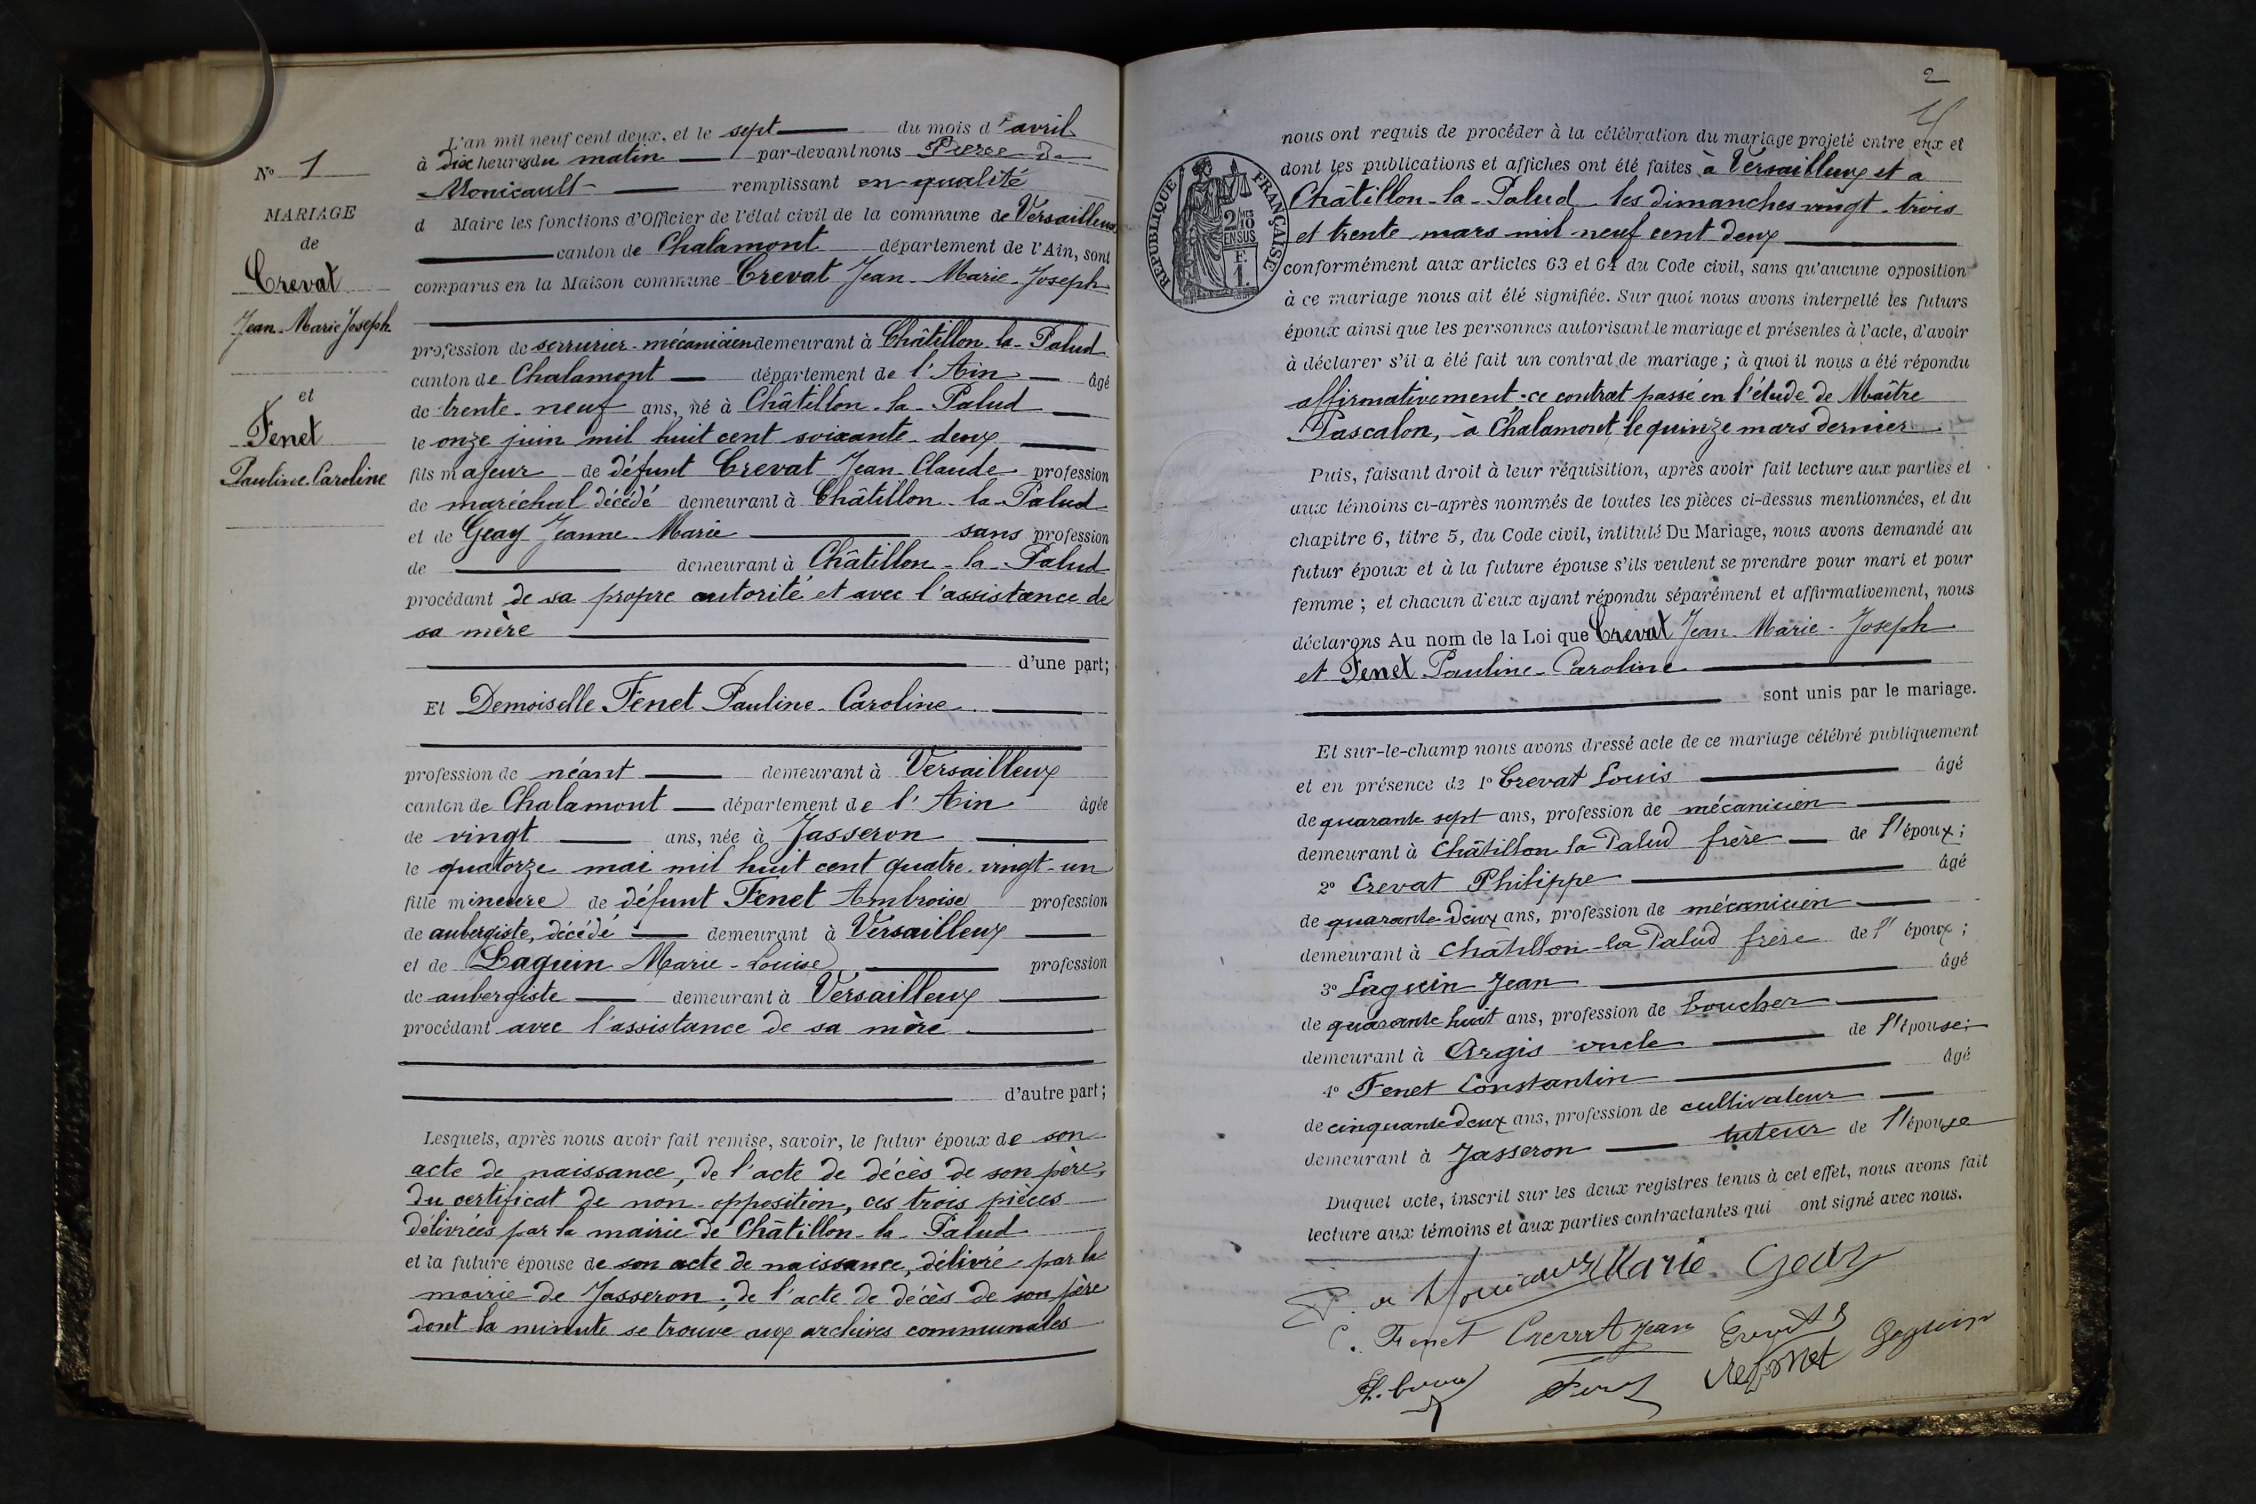 N° 1
MARIAGE
de
Crevat
Jean-Marie Joseph
et
Fenet
Pauline Caroline
L'an mil neuf cent deux, et le sept du mois d'avril
à dix heures du matin par-devant nous Pierre de
Monicault remplissant en qualité
d Maire les fonctions d'Officier de l'état civil de la commune de Versailleux
canton de Chalamont département de l'Ain, sont
comparus en la Maison commune Crevat Jean-Marie-Joseph
profession de serrurier-mécanicien demeurant à Châtillon-la-Palud
canton de Chalamont département de l'Ain âgé
de trente-neuf ans, né à Châtillon-la-Palud
le onze juin mil huit cent soixante-deux
fils majeur de défunt Crevat Jean-Claude profession
de maréchal décédé demeurant à Châtillon-la-Palud
et de Geay Jeanne-Marie sans profession
de demeurant à Châtillon-la-Palud
procédant de sa propre autorité et avec l'assistance de
sa mère
d'une part;
Et Demoiselle Fenet Pauline-Caroline
profession de néant demeurant à Versailleux
canton de Chalamont département de l'Ain âgée
de vingt ans, née à Jasseron
le quatorze mai mil huit cent quatre-vingt-un
fille mineure de défunt Fenet Ambroise profession
de aubergiste, décédé demeurant à Versailleux
et de Laguin Marie-Louise profession
de aubergiste demeurant à Versailleux
procédant avec l'assistance de sa mère
d'autre part;
Lesquels, après nous avoir fait remise, savoir, le futur époux de son
acte de naissance, de l'acte de décès de son père,
du certificat de non-opposition, ces trois pièces
délivrées par la mairie de Châtillon-la-Palud
et la future épouse de son acte de naissance, délivré par la
mairie de Jasseron; de l'acte de décès de son père
dont la minute se trouve aux archives communales
2
RÉPUBLIQUE FRANÇAISE
nous ont requis de procéder à la célébration du mariage projeté entre eux et
dont les publications et affiches ont été faites à Versailleux et à
Châtillon-la-Palud les dimanches vingt-trois
et trente mars mil neuf cent deux
conformément aux articles 63 et 64 du Code civil, sans qu'aucune opposition
à ce mariage nous ait été signifiée. Sur quoi nous avons interpellé les futurs
époux ainsi que les personnes autorisant le mariage et présentes à l'acte, d'avoir
à déclarer s'il a été fait un contrat de mariage; à quoi il nous a été répondu
affirmativement - ce contrat passé en l'étude de Maître
Pascalon, à Chalamont, le quinze mars dernier
Puis, faisant droit à leur réquisition, après avoir fait lecture aux parties et
aux témoins ci-après nommés de toutes les pièces ci-dessus mentionnées, et du
chapitre 6, titre 5, du Code civil, intitulé Du Mariage, nous avons demandé au
futur époux et à la future épouse s'ils veulent se prendre pour mari et pour
femme; et chacun d'eux ayant répondu séparément et affirmativement, nous
déclarons Au nom de la Loi que Crevat Jean-Marie-Joseph
et Fenet Pauline-Caroline
sont unis par le mariage.
Et sur-le-champ nous avons dressé acte de ce mariage célébré publiquement
et en présence de 1° Crevat Louis âgé
de quarante sept ans, profession de mécanicien
demeurant à Châtillon la Palud frère de l'époux;
2° Crevat Philippe âgé
de quarante-deux ans, profession de mécanicien
demeurant à Châtillon-la Palud frère de l'époux;
3° Laguin Jean âgé
de quarante huit ans, profession de boucher
demeurant à Argis oncle de l'épouse;
4° Fenet Constantin âgé
de cinquante deux ans, profession de cultivateur
demeurant à Jasseron tuteur de l'épouse
Duquel acte, inscrit sur les deux registres tenus à cet effet, nous avons fait
lecture aux témoins et aux parties contractantes qui ont signé avec nous.
P. de Monicault Marie Geay
C. Fenet Crevat Jean